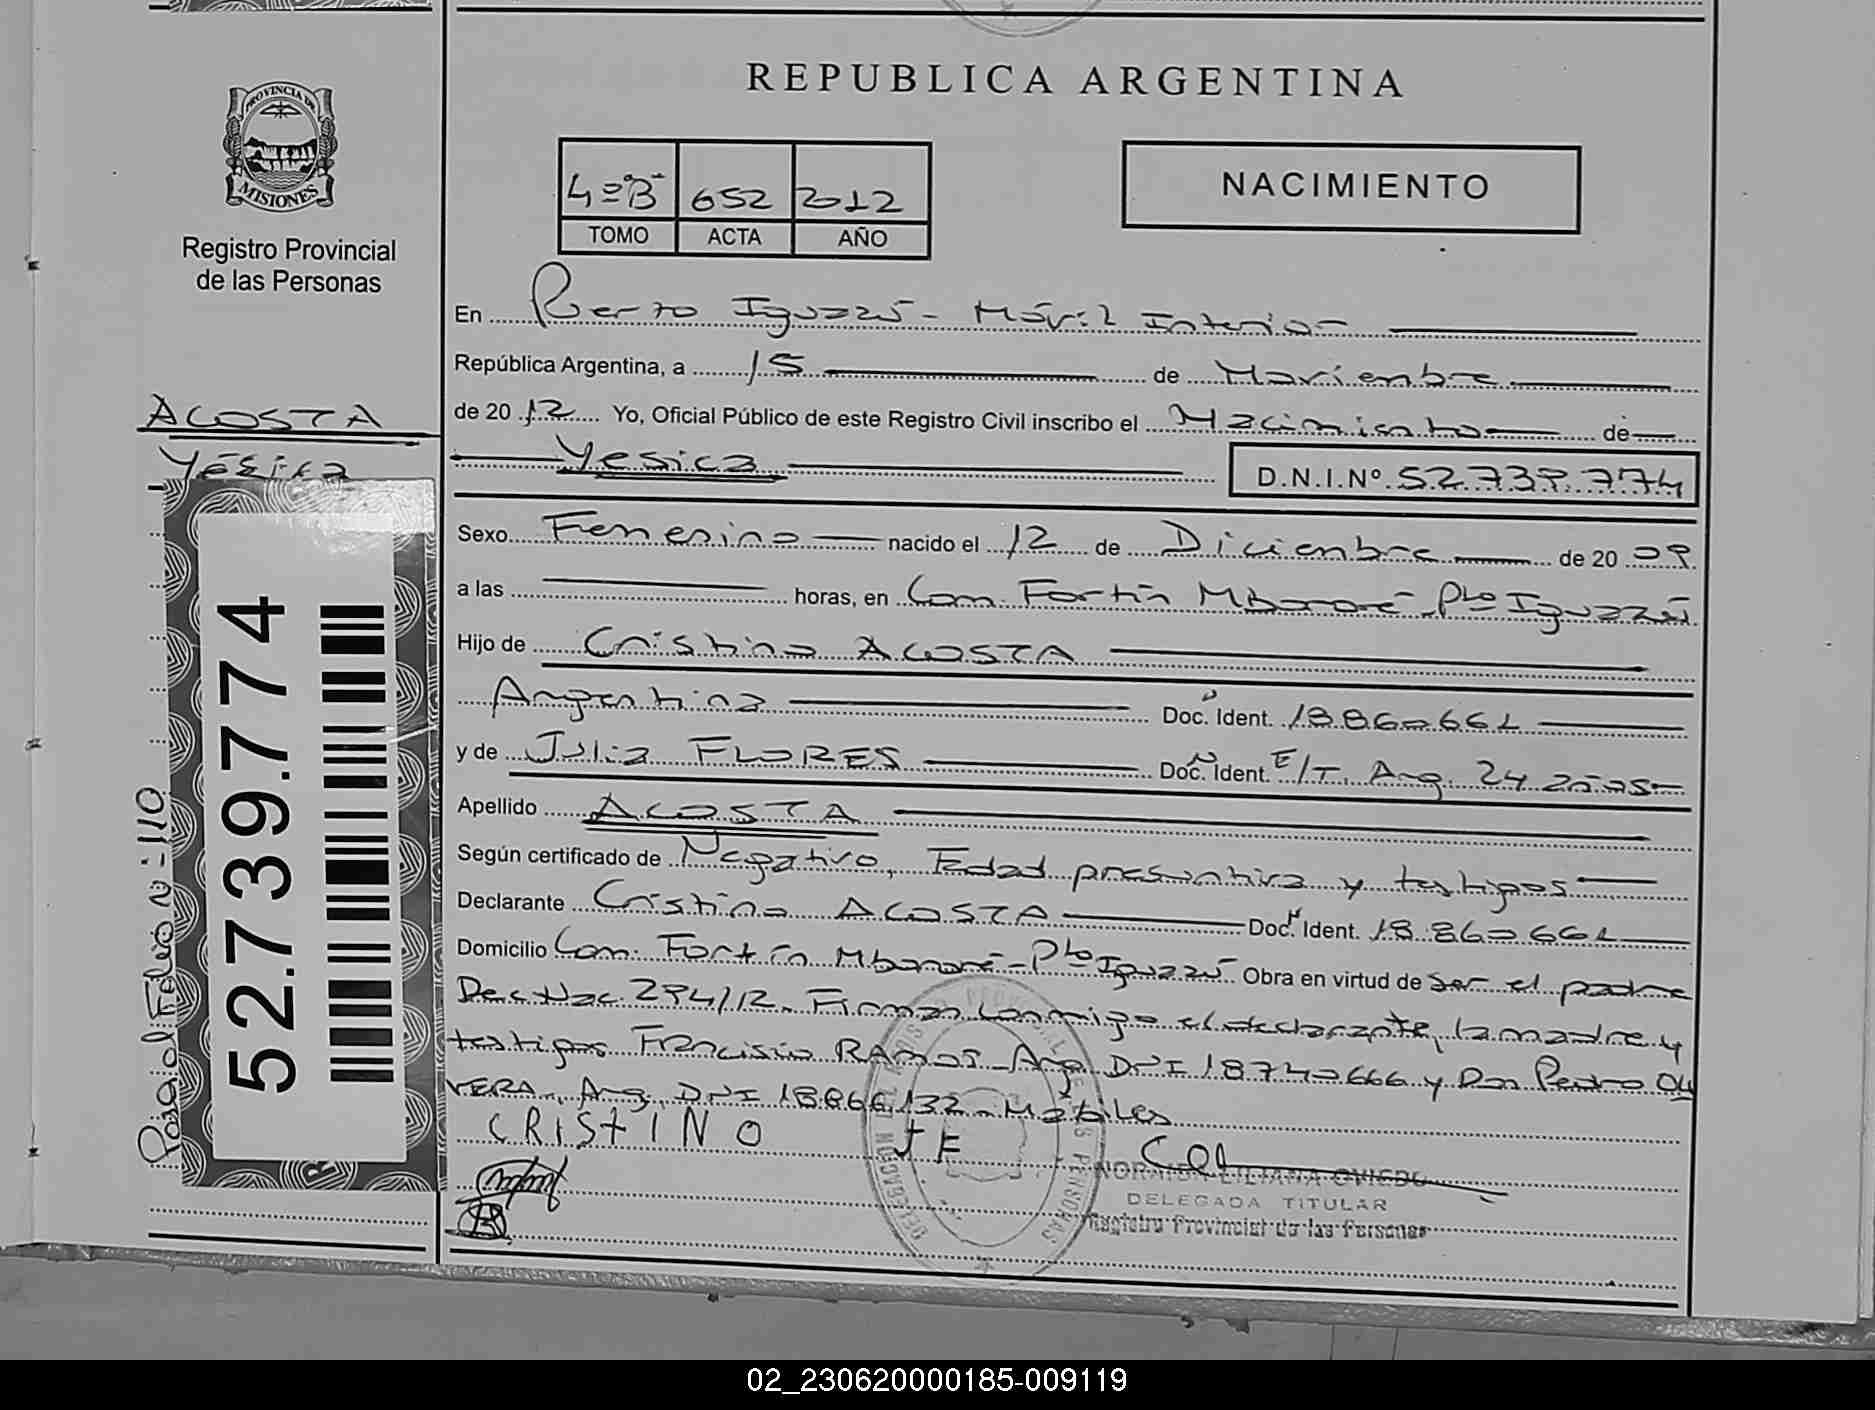 REPUBLICA ARGENTINA
PROVINCIA DE
MISIONES
Registro Provincial
de las Personas
4º"B" 652 2012
TOMO ACTA AÑO
NACIMIENTO
En Puerto Iguazú - Móvil Interior
República Argentina, a 15 de Noviembre
de 2012 Yo, Oficial Público de este Registro Civil inscribo el Nacimiento de
Yesica D.N.I.Nº 52.739.774
ACOSTA
Yésica
52.739.774
Posee al Folio Nº 110
Sexo Femenino nacido el 12 de Diciembre de 2009
a las horas, en Com. Fortín Mbororé - Pto Iguazú
Hijo de Cristino ACOSTA
Argentina Doc. Ident. 18860661
y de Julia FLORES Doc. Ident. E/T. Arg. 24 años
Apellido ACOSTA
Según certificado de Negativo, Edad presuntiva y testigos
Declarante Cristino ACOSTA Doc. Ident. 18.860.661
Domicilio Com. Fortín Mbororé - Pto Iguazú Obra en virtud de ser el padre
Dec. Nac. 294/12. Firman conmigo el declarante, la madre y
testigos Francisco RAMOS - Arg. DNI 18740666 y Don Pedro OLI
VERA. Arg. DNI 18866132 - Hábiles
CRISTINO JF
NORMA LILIANA OVIEDO
DELEGADA TITULAR
Registro Provincial de las Personas
02_230620000185-009119